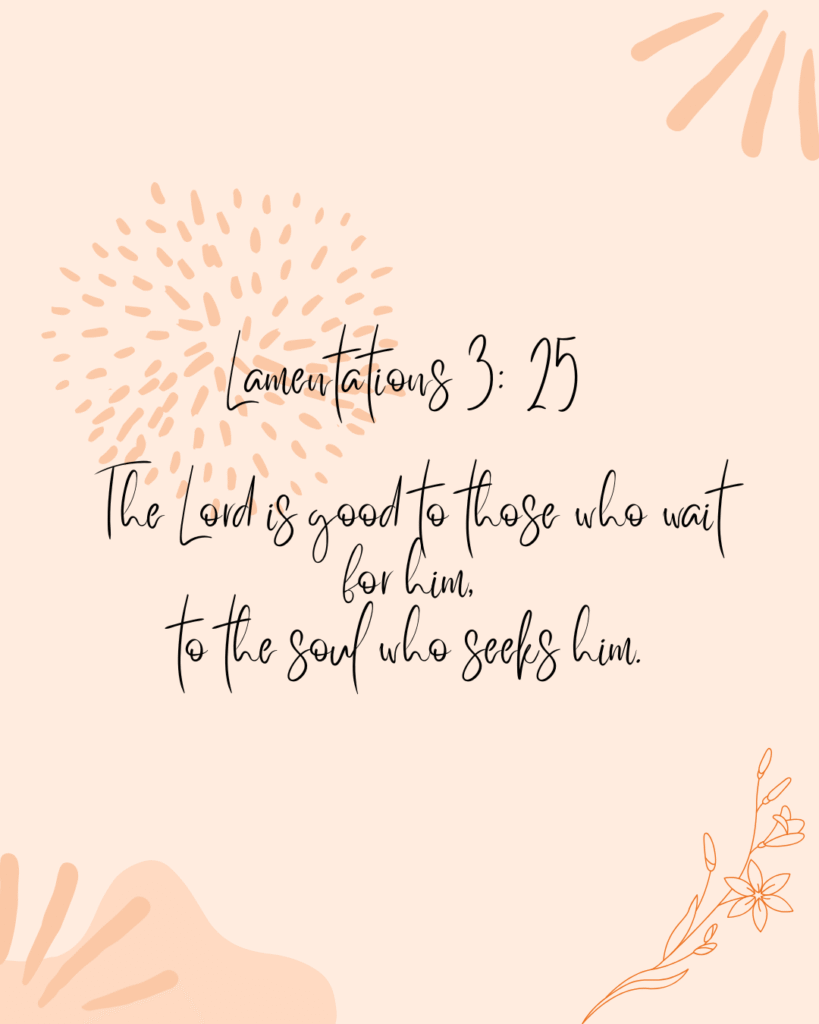 Lamentations 3: 25
The Lord is good to those who wait
for him,
to the soul who seeks him.